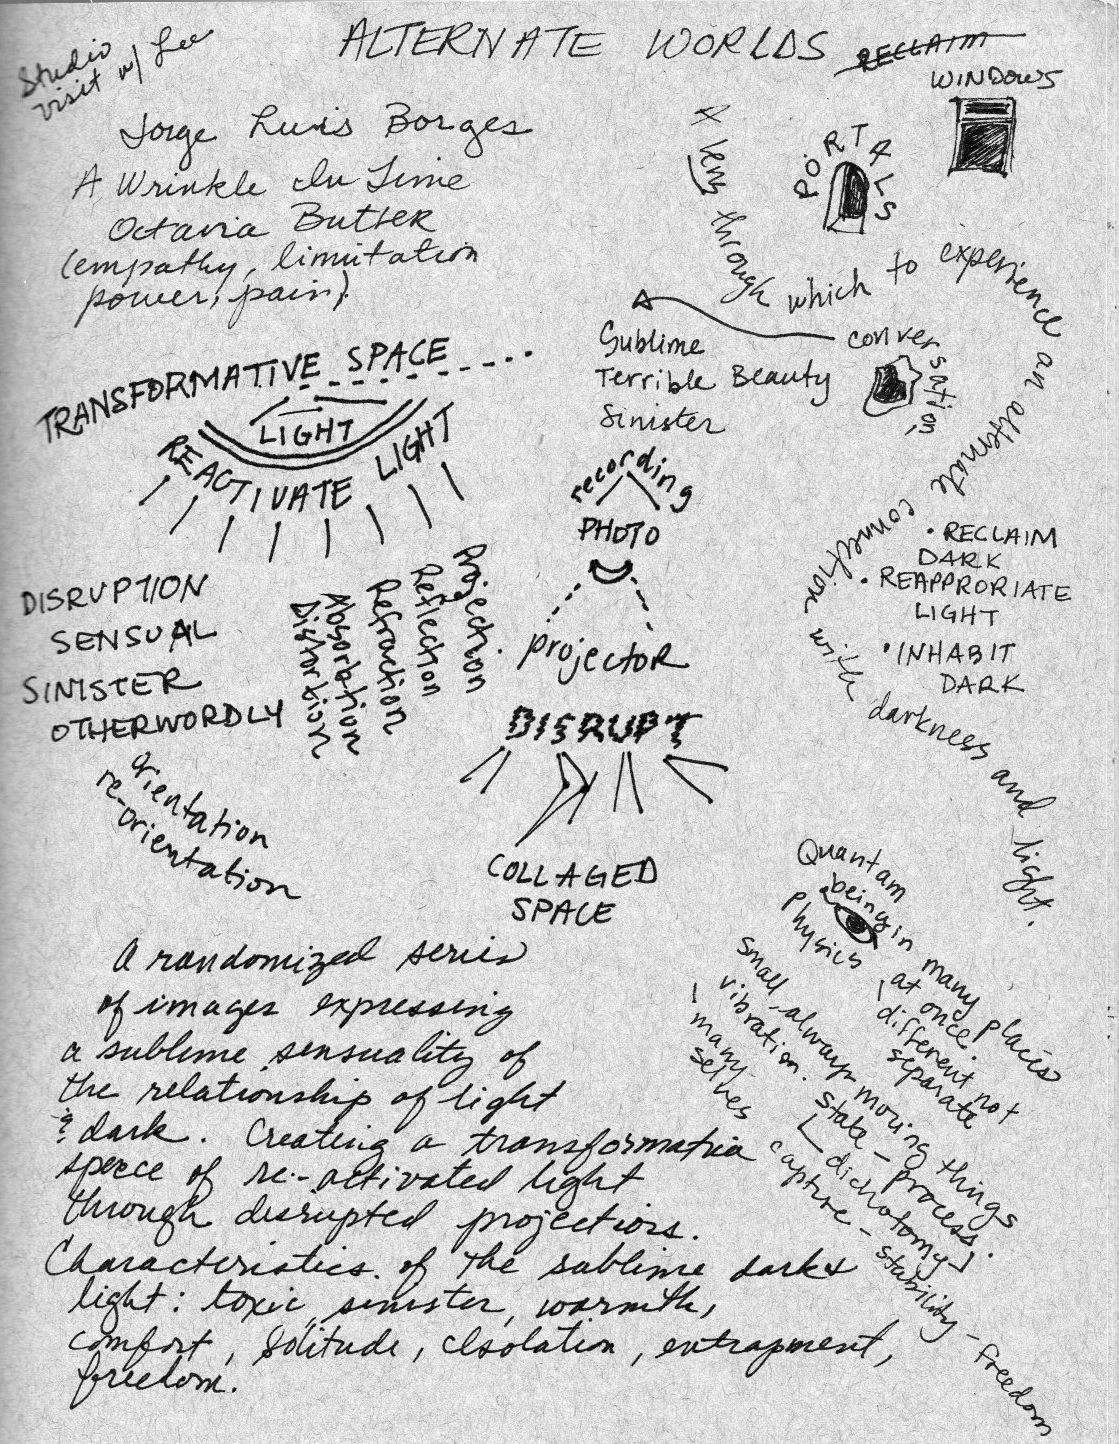 Studio
visit w/ Lee
ALTERNATE WORLDS
RECLAIM
WINDOWS
Jorge Luis Borges
A Wrinkle In Time
Octavia Butler
(empathy, limitation
power, pain)
PORTALS
A lens through which to experience an alternate connection with darkness and light.
conversation,
Sublime
Terrible Beauty
Sinister
TRANSFORMATIVE SPACE
LIGHT
REACTIVATE LIGHT
recording
PHOTO
projector
• RECLAIM
DARK
• REAPPRORIATE
LIGHT
• INHABIT
DARK
DISRUPTION
SENSUAL
SINISTER
OTHERWORDLY
Distortion
Absorbtion
Refraction
Reflection
Projection
DISRUPT
orientation
re-orientation
COLLAGED
SPACE
Quantam
being in many places
physics
at once.
different not
separate
small always moving things
vibration. state - process.
many
selves
dichotomy
capture - stability - freedom
A randomized series
of images expressing
a sublime sensuality of
the relationship of light
& dark. Creating a
of re-activated light
through disrupted projections.
Characteristics of the sublime dark &
light: toxic, sinister, warmth,
comfort, Solitude, Isolation, entrapment,
freedom.